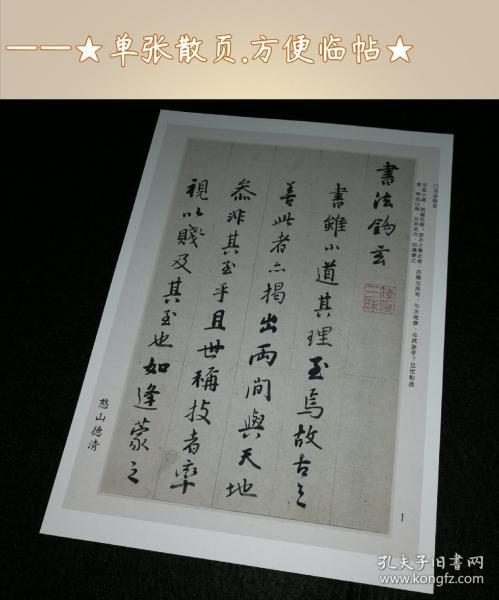 ——★单张散页.方便临帖★
書法鉤玄
書雖小道其理至焉故古之
善此者亦揭出兩間與天地
叅非其至乎且世稱技者率
視以賤及其至也如逢蒙之
憨山德清
1
孔夫子旧书网
www.kongfz.com